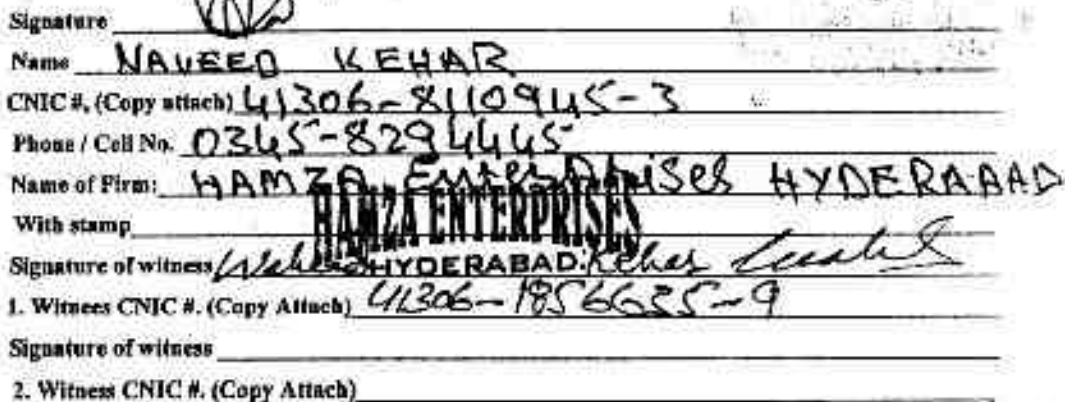 Signature
Name NAVEED KEHAR
CNIC #. (Copy attach) 41306-8110945-3
Phone / Cell No. 0345-8294445
Name of Firm: HAMZA Enterprises HYDERABAD
With stamp HAMZA ENTERPRISES
HYDERABAD.
Signature of witness Waheed Kehar
1. Witnees CNIC #. (Copy Attach) 41306-1856635-9
Signature of witness
2. Witness CNIC #. (Copy Attach)